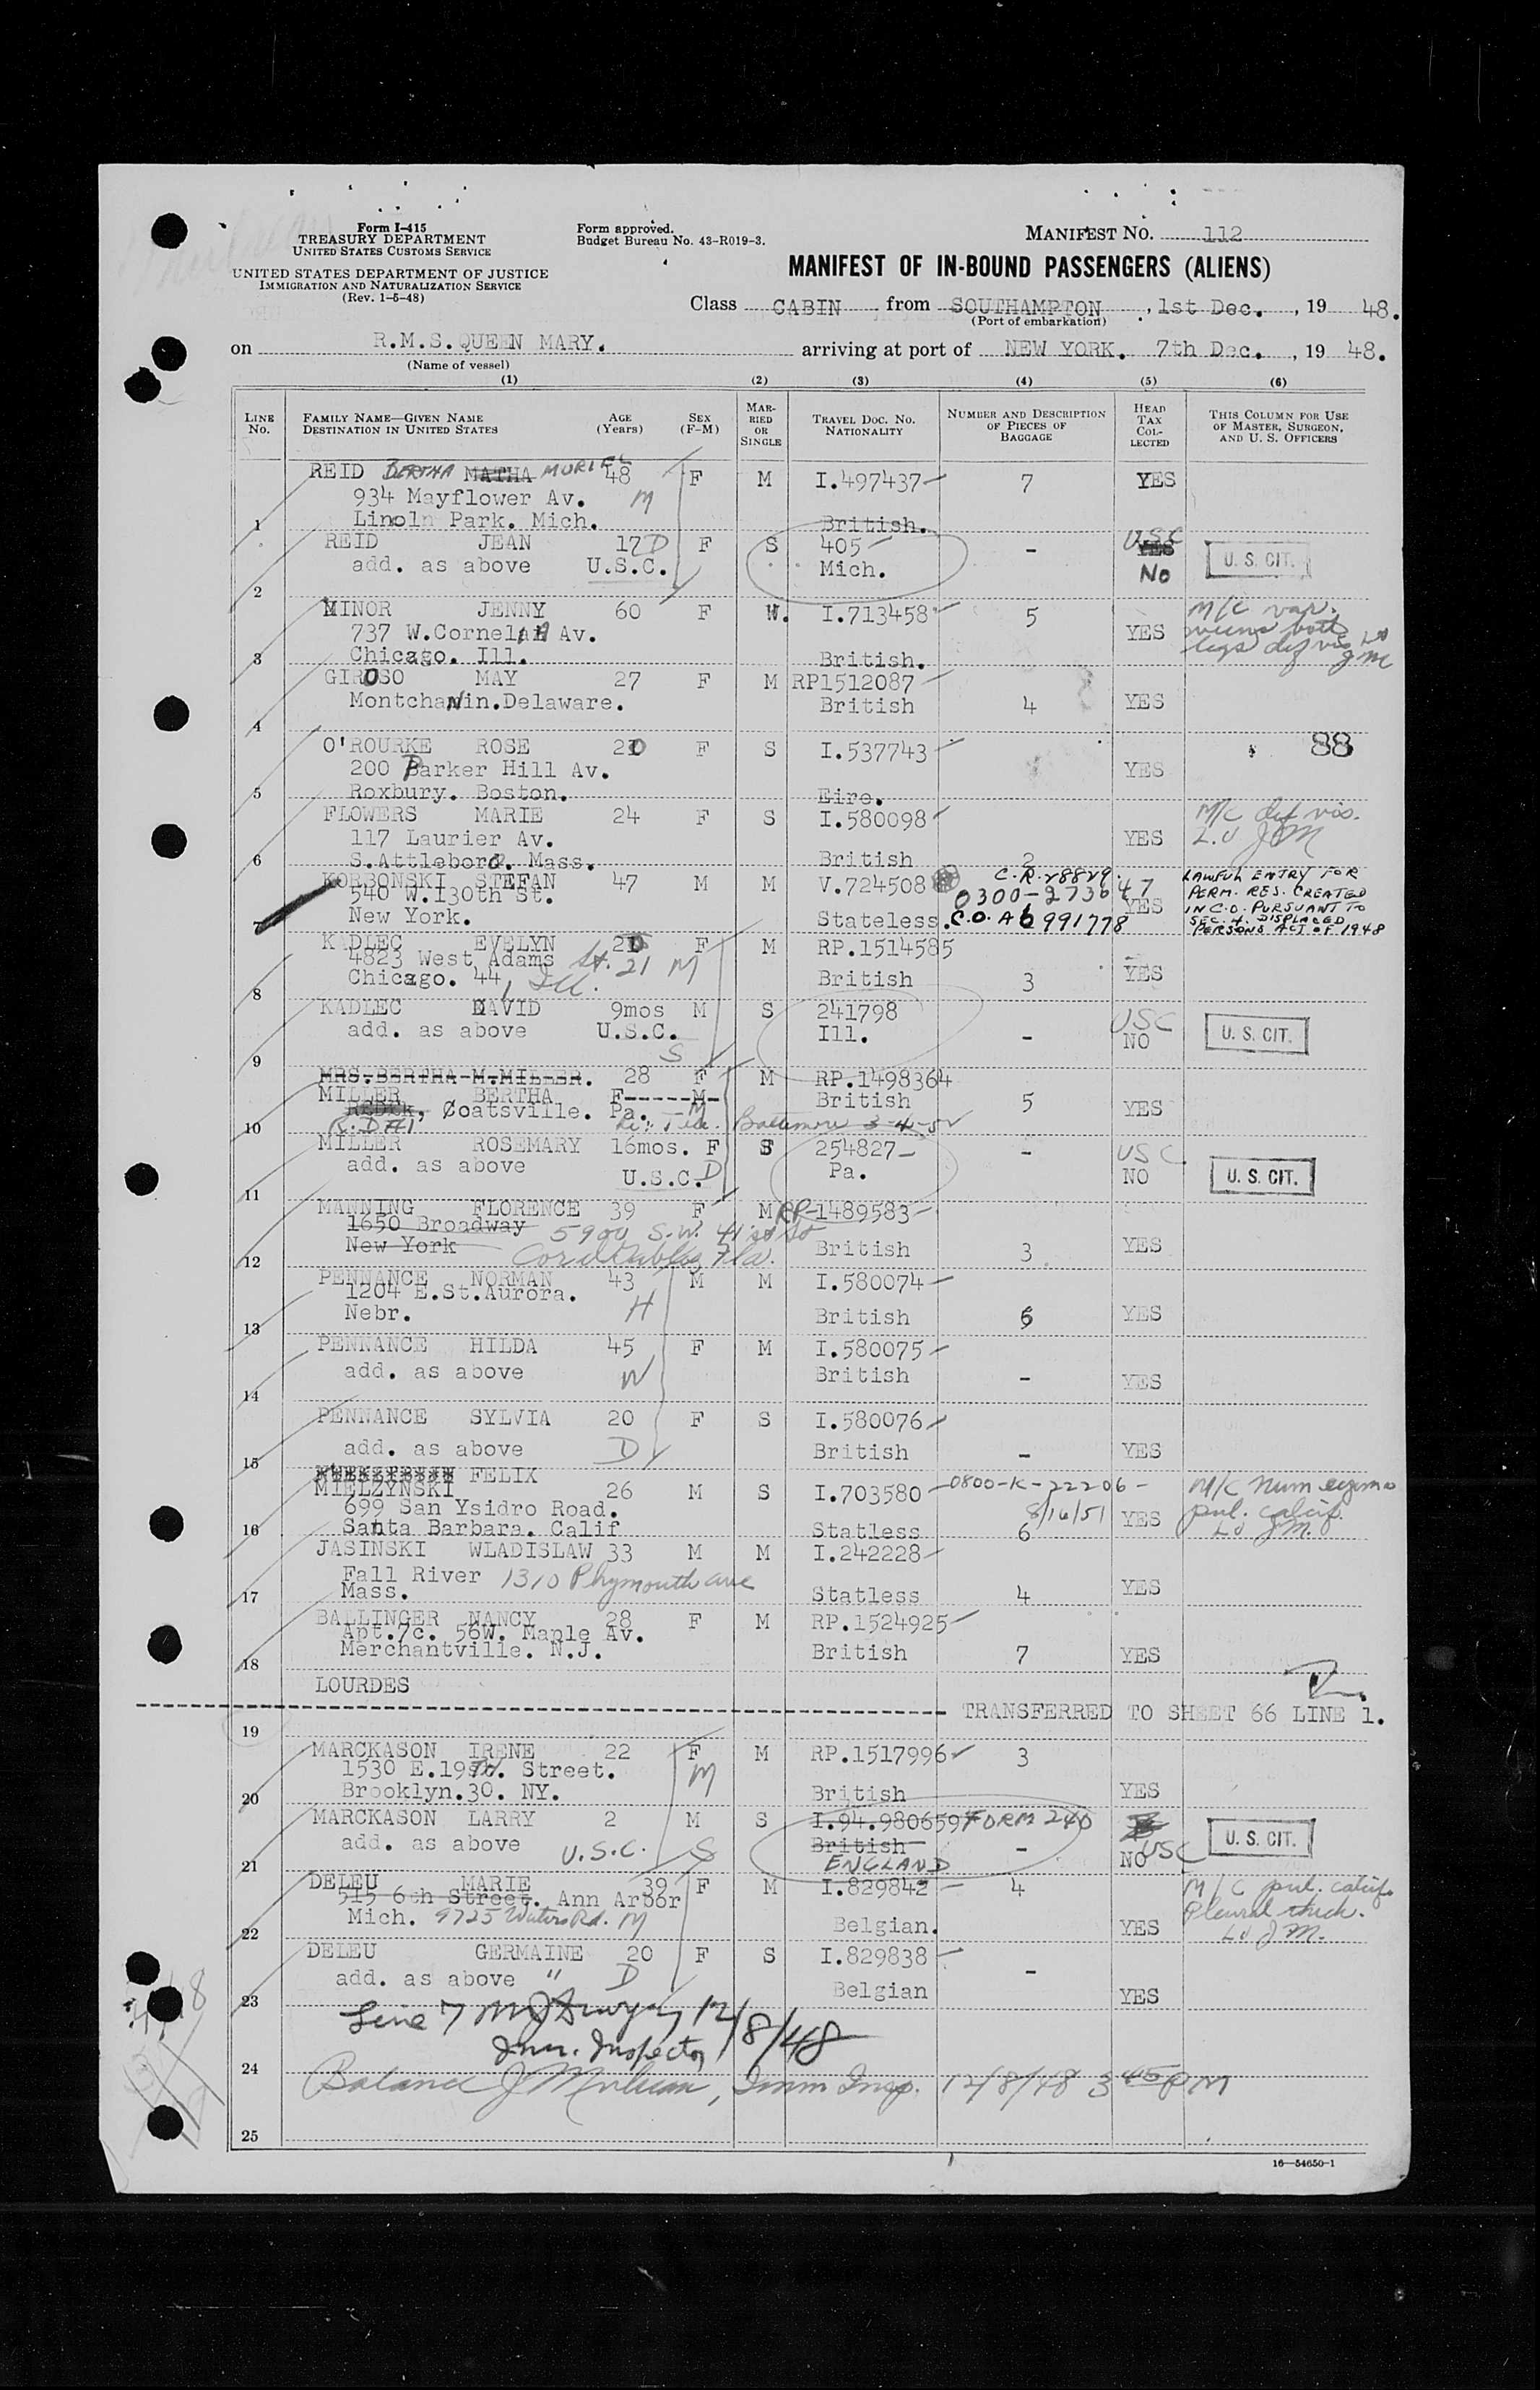 Form I-415
TREASURY DEPARTMENT
UNITED STATES CUSTOMS SERVICE
UNITED STATES DEPARTMENT OF JUSTICE
IMMIGRATION AND NATURALIZATION SERVICE
(Rev. 1-5-48)
Form approved.
Budget Bureau No. 43-R019-3.
MANIFEST NO. 112
MANIFEST OF IN-BOUND PASSENGERS (ALIENS)
Class CABIN from SOUTHAMPTON, 1st Dec., 19 48.
(Port of embarkation)
on R.M.S.QUEEN MARY. arriving at port of NEW YORK. 7th Dec., 19 48.
(Name of vessel)
(1) (2) (3) (4) (5) (6)
LINE No.
FAMILY NAME—GIVEN NAME DESTINATION IN UNITED STATES
AGE (Years)
SEX (F-M)
MARRIED OR SINGLE
TRAVEL DOC. NO. NATIONALITY
NUMBER AND DESCRIPTION OF PIECES OF BAGGAGE
HEAD TAX COLLECTED
THIS COLUMN FOR USE OF MASTER, SURGEON, AND U. S. OFFICERS
REID BERTHA MATHA MURIEL 48 F M I.497437 7 YES
934 Mayflower Av. M
1 Lincoln Park. Mich. British.
REID JEAN 17 D F S 405 - USC YES U. S. CIT.
add. as above U.S.C. Mich. No
2
MINOR JENNY 60 F W. I.713458 5 M/C var.
737 W.Cornelia Av. YES veins both
3 Chicago. Ill. British. legs def vis
GIROSO MAY 27 F M RP1512087
Montchanin.Delaware. British 4 YES
4
O'ROURKE ROSE 20 F S I.537743 88
200 Parker Hill Av. YES
5 Roxbury. Boston. Eire.
FLOWERS MARIE 24 F S I.580098 M/C def vis.
117 Laurier Av. YES JM
6 S.Attleboro. Mass. British 2
KORBONSKI STEFAN 47 M M V.724508 C.R. 28829. LAWFUL ENTRY FOR
540 W.130th St. 0300-27364 7 YES PERM. RES. CREATED
7 New York. Stateless. C.O. A6 991778 IN C.O. PURSUANT TO
SEC. 4. DISPLACED
PERSONS ACT OF 1948
KADLEC EVELYN F M RP.1514585
4823 West Adams St. 21 M YES
8 Chicago. 44, Ill. British 3
KADLEC DAVID 9mos M S 241798 USC U. S. CIT.
add. as above U.S.C. Ill. - NO
9 S
MRS.BERTHA M.MILLER. 28 F M RP.1498364
MILLER BERTHA F-----M- British 5 YES
Coatsville. Pa. M
10 R.D #1 Baltimore
MILLER ROSEMARY 16mos. F S 254827 - USC
add. as above U.S.C. D Pa. NO U. S. CIT.
11
MANNING FLORENCE 39 F M RP-1489583
1650 Broadway 5900 S.W. 41st St
12 New York Coral Gables Fla. British 3 YES
PENNANCE NORMAN 43 M M I.580074
1204 E.St.Aurora. H
13 Nebr. British 6 YES
PENNANCE HILDA 45 F M I.580075
add. as above W British - YES
14
PENNANCE SYLVIA 20 F S I.580076
15 add. as above D British - YES
FELIX
MIELZYNSKI 26 M S I.703580 0800-K-22206- M/C num eczema
699 San Ysidro Road. 8/16/51 YES pul. calcif.
16 Santa Barbara. Calif Statless 6 JM
JASINSKI WLADISLAW 33 M M I.242228
Fall River 1310 Plymouth Ave YES
17 Mass. Statless 4
BALLINGER NANCY 28 F M RP.1524925
Apt.7c. 56W. Maple Av.
18 Merchantville. N.J. British 7 YES
LOURDES
TRANSFERRED TO SHEET 66 LINE 1.
19
MARCKASON IRENE 22 F M RP.1517996 3
1530 E.19TH. Street. M
20 Brooklyn.30. NY. British YES
MARCKASON LARRY 2 M S I.94.980659 FORM 240 U. S. CIT.
add. as above U.S.C. S British - NO USC
21 ENGLAND
DELEU MARIE 39 F M I.829842 4 M/C pul. calcif.
515 6th Street. Ann Arbor Pleural thick.
22 Mich. 9725 Waters Rd. M Belgian. YES JM.
DELEU GERMAINE 20 F S I.829838
add. as above " D - 
23 Belgian YES
Line 7 12/8/48
Imm. Inspector
24
Balance J Imm Insp. 12/8/48 3 45 PM
25
16—54650-1